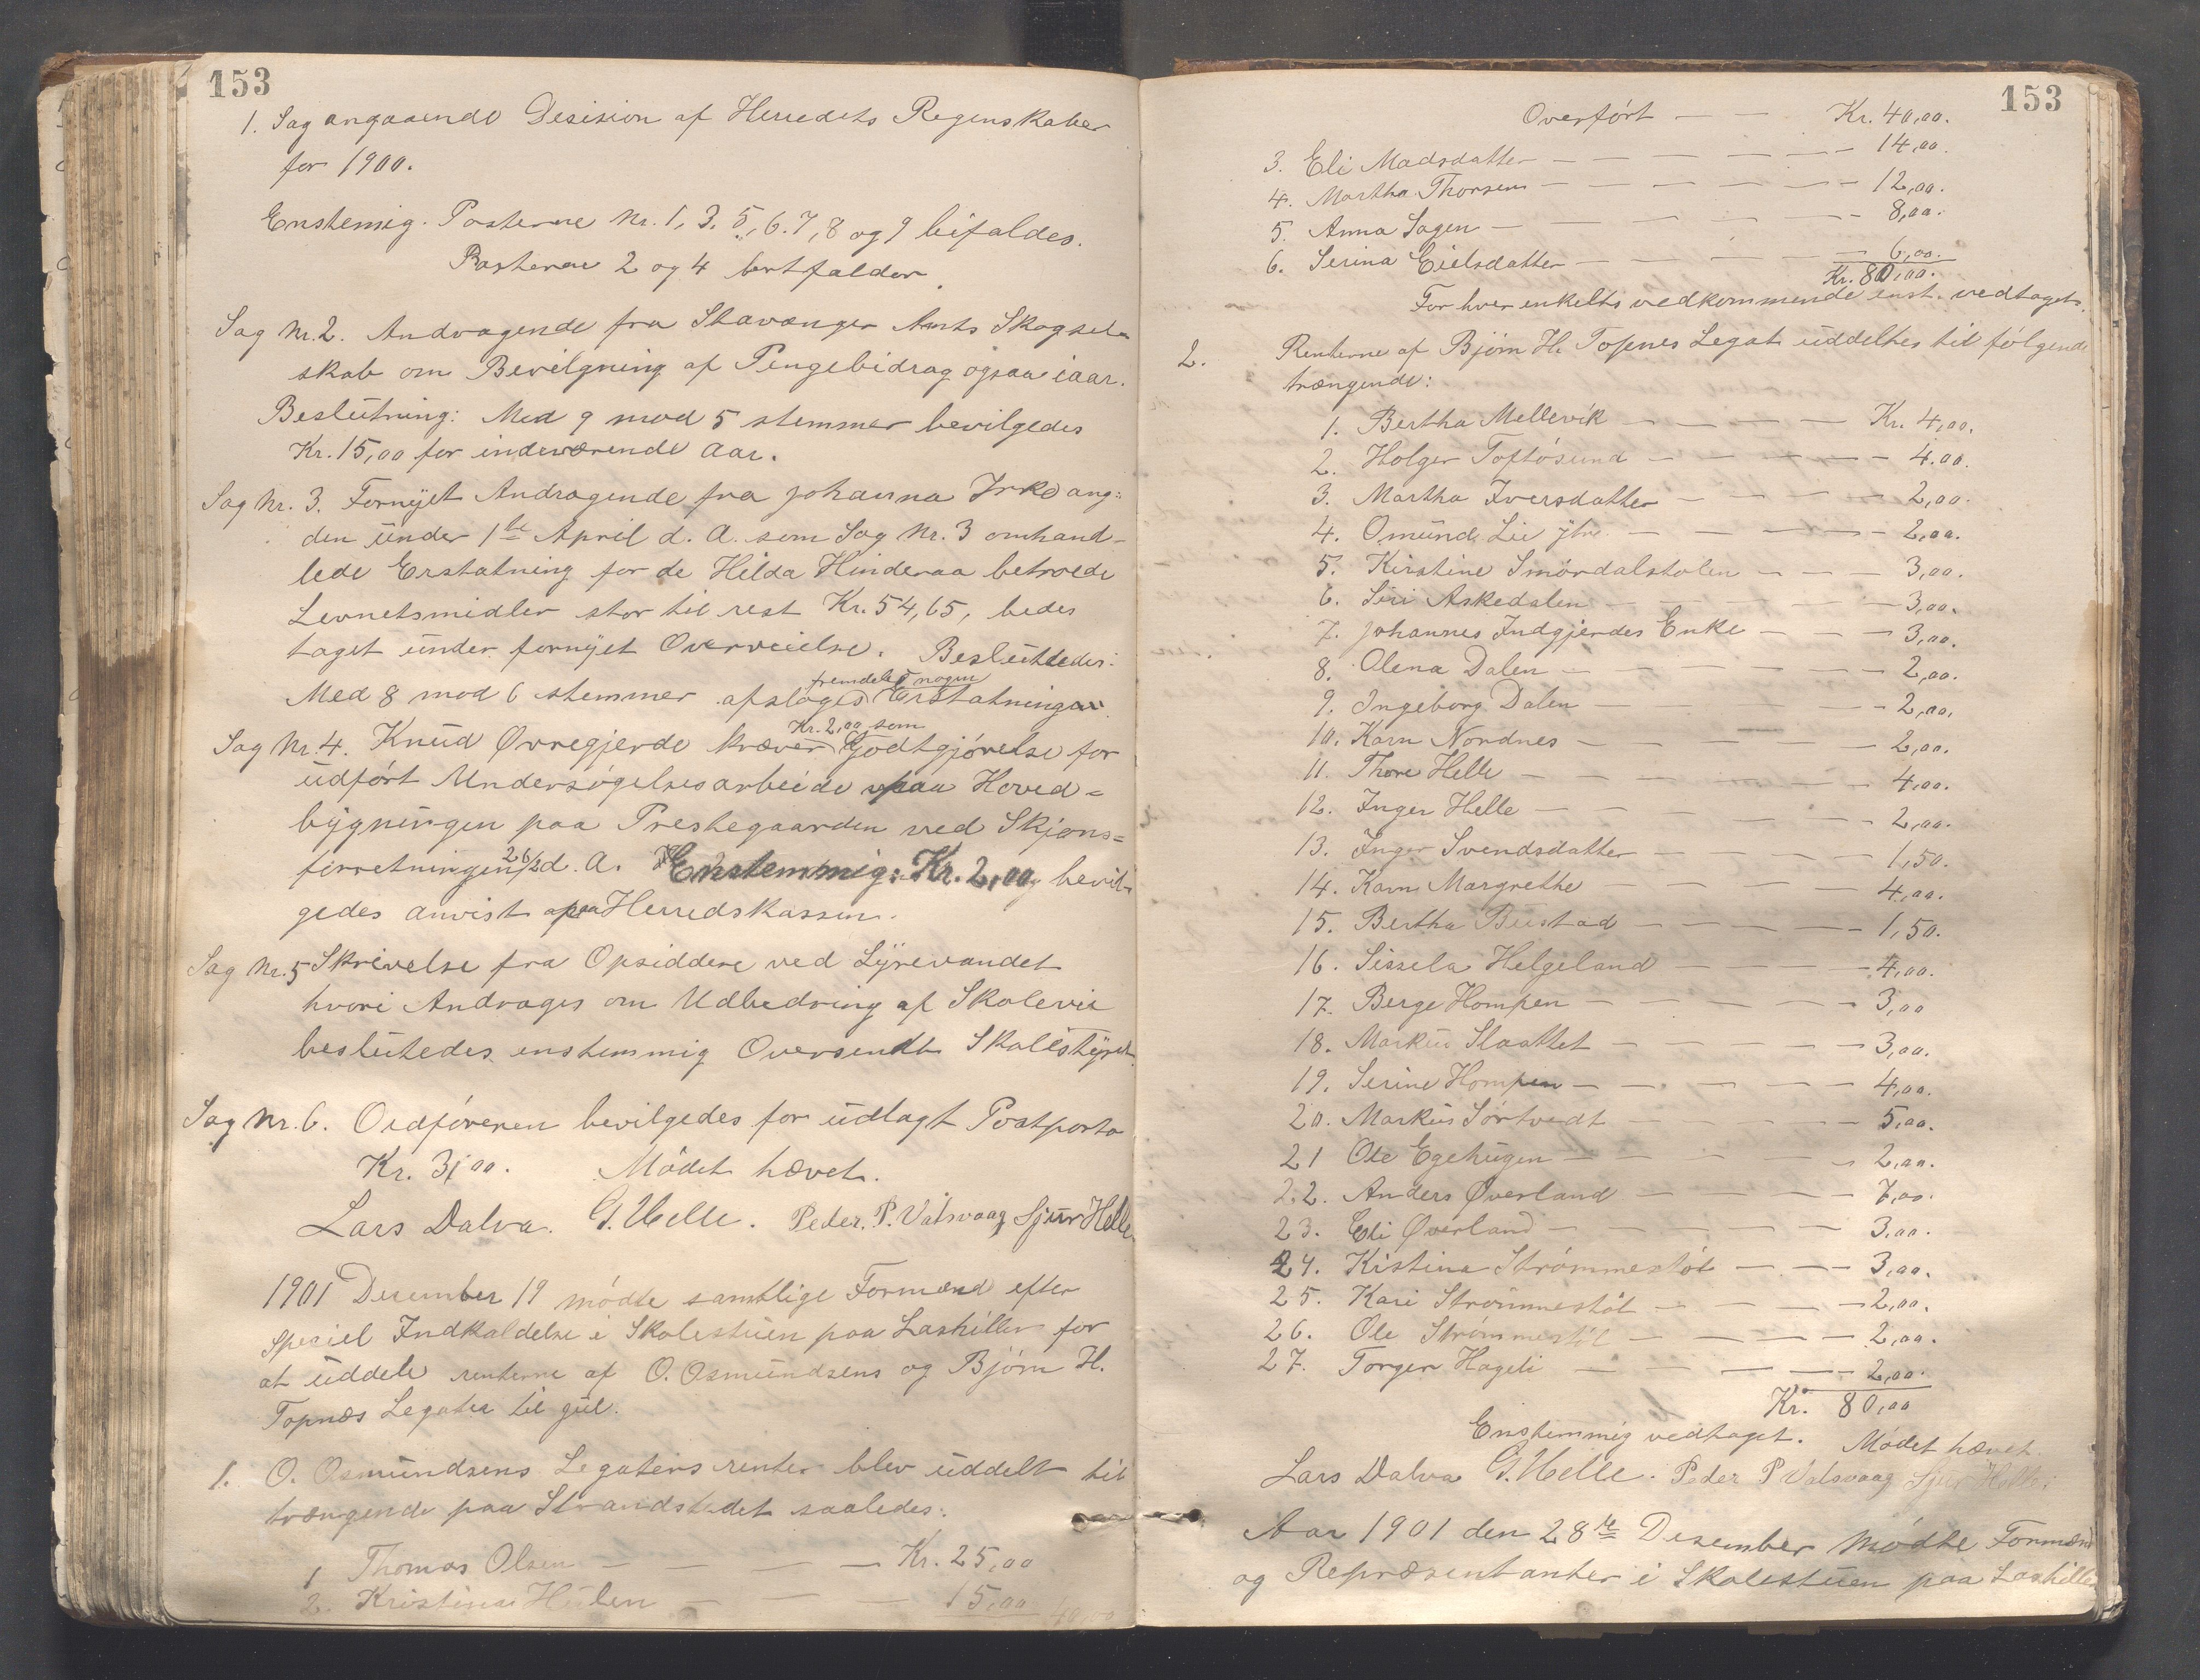 153
1. Sag angaaende Desision af Herredets Regnskaber
for 1900.
Enstemig. Posterne Nr. 1, 3. 5, 6. 7, 8 og 9 bifaldes.
Posterne 2 og 4 bortfalder.
Sag Nr. 2. Andragende fra Stavanger Amts Skogsel-
skab om Bevilgning af Pengebidrag ogsaa iaar.
Beslutning: Med 9 mod 5 stemmer bevilgedes
Kr. 15,00 for indeværende Aar.
Sag Nr. 3. Fornyet Andragende fra Johanna Jrke ang:
den under 1te April d. A. som Sag Nr. 3 omhand-
lede Erstatning for de Hilda Hinderaa betroede
Levnetsmidler stor til rest Kr. 54,65, bedes
taget under fornyet Overveielse. Besluttedes:
Med 8 mod 6 stemmer afsloges fremdeles nogen Erstatning
Sag Nr. 4. Knud Øvregjerde kræver Kr. 2,00 som Godtgjørelse for
udført Undersøgelsesarbeide paa Hoved-
bygningen paa Prestegaarden ved Skjøns=
forretningen 26/2 d. A. Enstemmig: Kr. 2,00 bevil-
gedes anvist paa Herredskassen.
Sag Nr. 5 Skrivelse fra Opsiddere ved Lyrevandet
hvori Andrages om Udbedring af Skolevei
besluttedes enstemmig Oversendt Skolestyret.
Sag Nr. 6. Ordføreren bevilgedes for udlagt Postporto
Kr. 3,00. Mødet hævet.
Lars Dalva. G. Helle. Peder. P. Vatsvaag Sjur Helle
1901 December 19 mødte samtlige Formænd efter
speciel Indkaldelse i Skolestuen paa Lashiller for
at uddele renterne af O. Osmundsens og Bjørn H.
Topnæs Legater til jul.
1. O. Osmundsens Legatets renter blev uddelt til
trængende paa Strandstedet saaledes:
1 Thomas Olsen — — — — Kr. 25,00
2. Kristina Hulen — — — 15,00 40,00
153
Overført — — Kr. 40,00.
3. Eli Madsdatter — — — — — 14,00.
4. Martha Thorsen — — — — — 12,00.
5. Anna Sagen — — — — — 8,00.
6. Serina Eielsdatter — — — — — 6,00.
Kr. 80,00.
For hver enkelts vedkommende enst. vedtaget.
2. Renterne af Bjørn H. Topnes Legat uddeltes til følgende
trængende:
1. Bertha Mellevik — — — — Kr. 4,00.
2. Holger Toftøsund — — — — 4.00.
3. Martha Iversdatter — — — — 2,00.
4. Omund Lie ytre — — — — 2,00.
5. Kirstine Smørdalstølen — — — 3,00.
6. Siri Askedalen — — — — 3,00.
7. Johannes Indgjerdes Enke — — — 3,00.
8. Olena Dalen — — — — 2,00.
9. Ingeborg Dalen — — — — 2,00,
10. Karn Nordnes — — — — 2,00.
11. Thore Helle — — — — 4,00.
12. Inger Helle — — — — 2,00.
13. Inger Svendsdatter — — — — 1,50.
14. Karn Margrethe — — — — 4,00.
15. Bertha Bustad — — — — 1,50.
16. Sissela Helgeland — — — — 4,00.
17. Berge Hompen — — — — 3,00
18. Markus Slaattet — — — — 3,00.
19. Serine Hompen — — — — 4,00.
20. Markus Sørtvedt — — — — 5,00.
21 Ole Egehugen — — — — 2,00.
22. Anders Øverland — — — — 7,00.
23. Eli Øverland — — — — 3,00.
24. Kistina Strømmestøl — — — 3,00.
25. Kari Strømmestøl — — — — 2,00.
26. Ole Strømmestøl — — — — 2,00.
27. Torger Hageli — — — — 2,00.
Kr. 80,00
Enstemmig vedtaget. Mødet hævet.
Lars Dalva G. Helle. Peder P Vatsvaag Sjur Helle.
Aar 1901 den 28de Desember mødte Formænd
og Repræsentanter i Skolestuen paa Lashiller